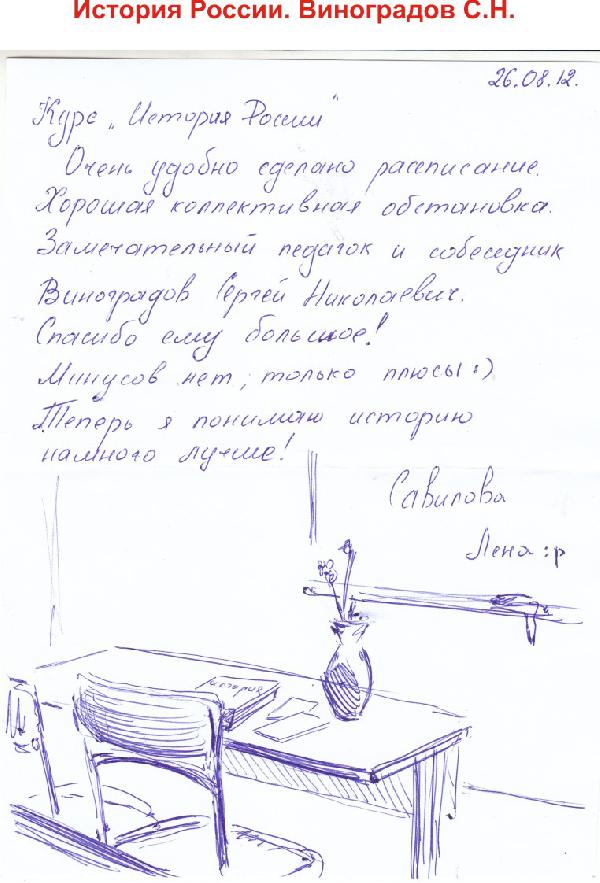 История России. Виноградов С.Н.
26.08.12.
Курс „История России"
Очень удобно сделано расписание.
Хорошая коллективная обстановка.
Замечательный педагок и собеседник
Виноградов Сергей Николаевич.
Спасибо ему большое!
Минусов нет, только плюсы :)
Теперь я понимаю историю
намного лучше!
Савилова
Лена :p
история